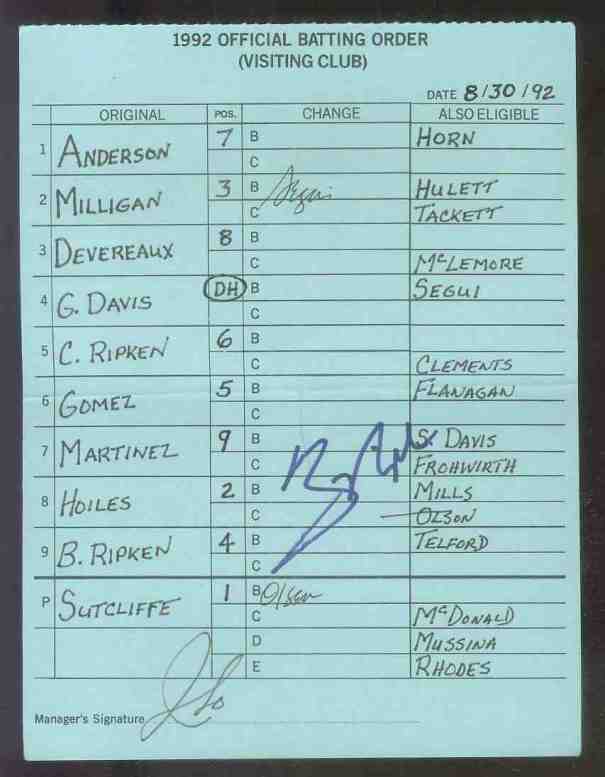 1992 OFFICIAL BATTING ORDER
(VISITING CLUB)
DATE 8/30/92
ORIGINAL POS. CHANGE ALSO ELIGIBLE
1 ANDERSON 7 B HORN
C
2 MILLIGAN 3 B Segui HULETT
C TACKETT
3 DEVEREAUX 8 B
C McLEMORE
4 G. DAVIS DH B SEGUI
C
5 C. RIPKEN 6 B
C CLEMENTS
6 GOMEZ 5 B FLANAGAN
C
7 MARTINEZ 9 B S. DAVIS
C FROHWIRTH
8 HOILES 2 B MILLS
C OLSON
9 B. RIPKEN 4 B TELFORD
C
P SUTCLIFFE 1 B Olsen
C McDONALD
D MUSSINA
E RHODES
Manager's Signature